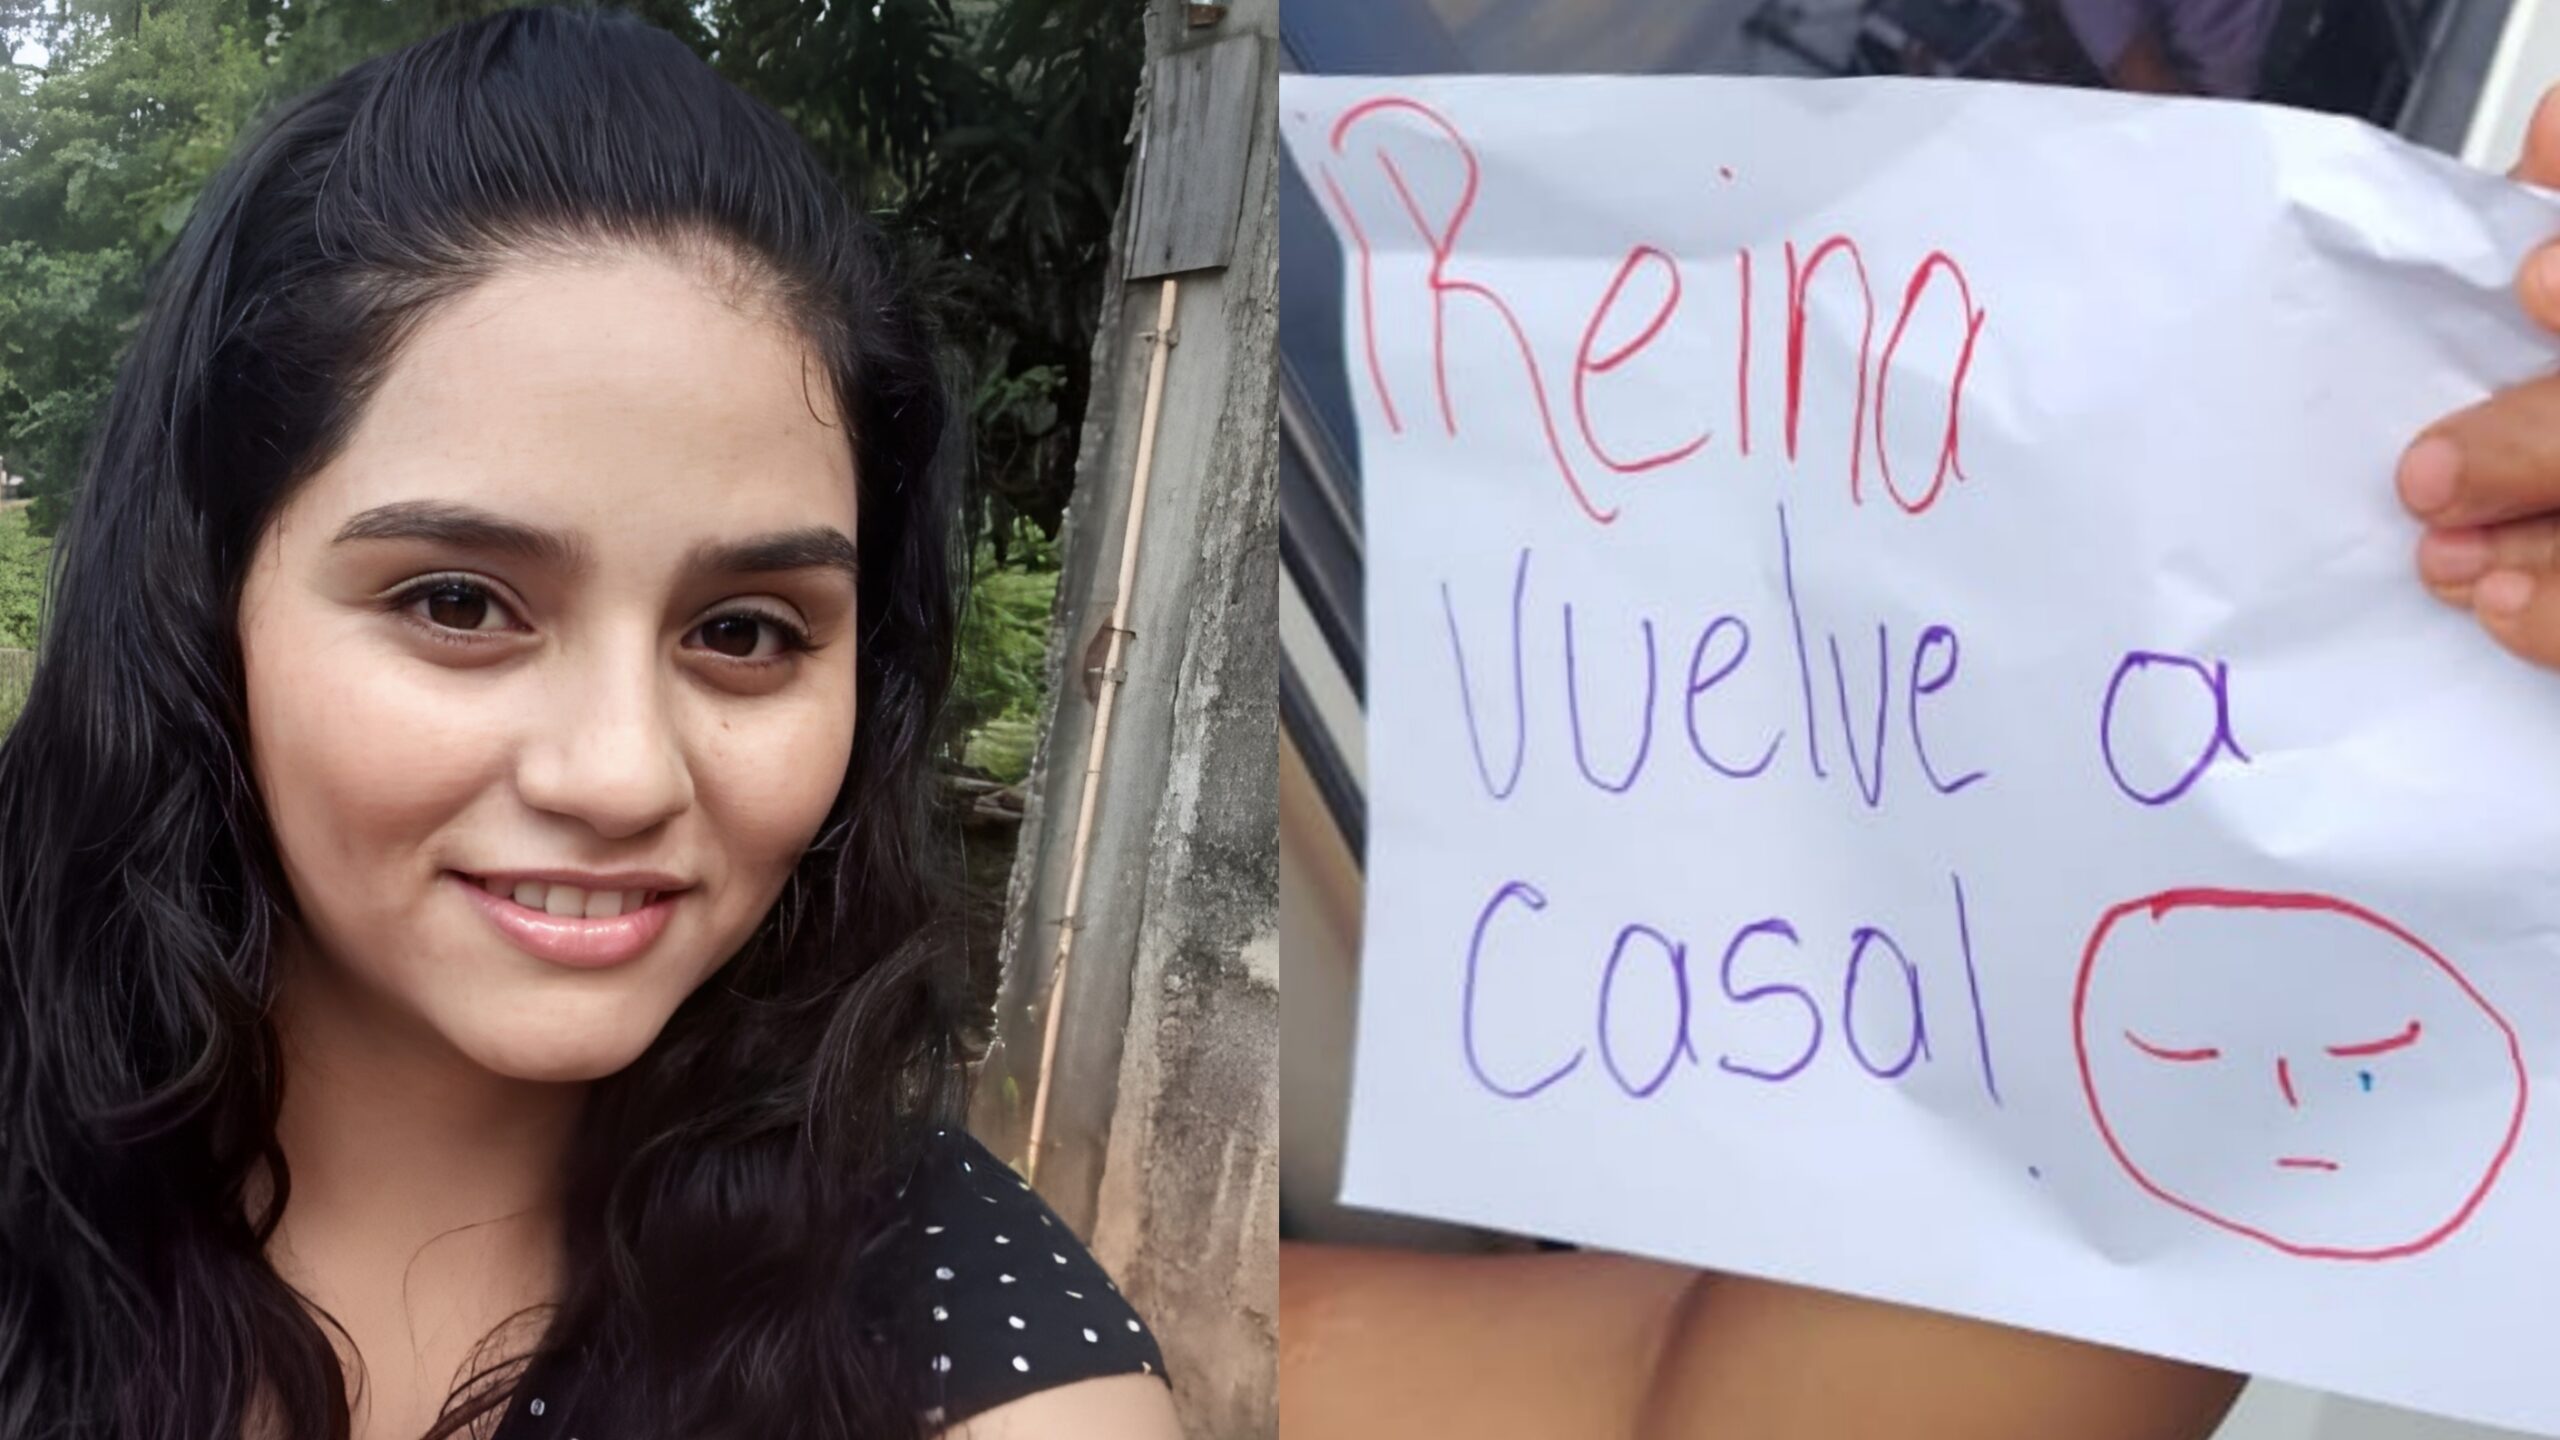 Reina
vuelve a
casa!